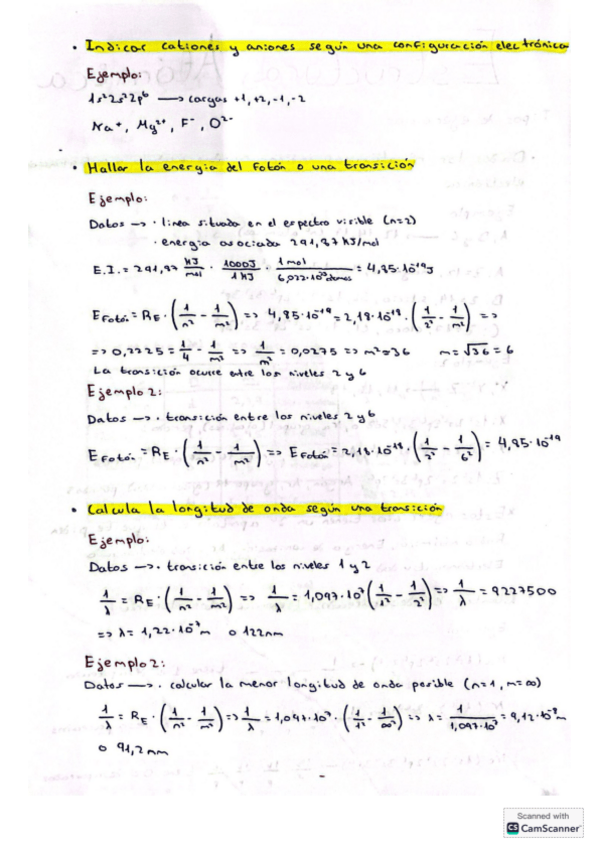 • Indicar cationes y aniones según una configuración electrónica
Ejemplo:
1s²2s²2p⁶ → cargas +1, +2, -1, -2
Na⁺, Mg²⁺, F⁻, O²⁻
• Hallar la energía del fotón o una transición
Ejemplo:
Datos → · línea situada en el espectro visible (n=2)
· energía asociada 291,87 KJ/mol
E.I. = 291,87 KJ/mol · 1000J/1KJ · 1 mol/6,022·10²³ átomos = 4,85·10⁻¹⁹J
E Fotón = RE · (1/n² - 1/m²) => 4,85·10⁻¹⁹ = 2,18·10⁻¹⁸ · (1/2² - 1/m²) =>
=> 0,2225 = 1/4 - 1/m² => 1/m² = 0,0275 => m² = 36 m = √36 = 6
La transición ocurre entre los niveles 2 y 6
Ejemplo 2:
Datos → · transición entre los niveles 2 y 6
E Fotón = RE · (1/n² - 1/m²) => E Fotón = 2,18·10⁻¹⁸ · (1/2² - 1/6²) = 4,85·10⁻¹⁹
• Calcula la longitud de onda según una transición
Ejemplo:
Datos → · transición entre los niveles 1 y 2
1/λ = RE · (1/n² - 1/m²) => 1/λ = 1,097·10⁷ (1/1² - 1/2²) => 1/λ = 8227500
=> λ = 1,22·10⁻⁷m o 122nm
Ejemplo 2:
Datos → · calcular la menor longitud de onda posible (n=1, m=∞)
1/λ = RE · (1/n² - 1/m²) => 1/λ = 1,097·10⁷ · (1/1² - 1/∞²) => λ = 1/1,097·10⁷ = 9,12·10⁻⁸m
o 91,2 nm
Scanned with
CS CamScanner